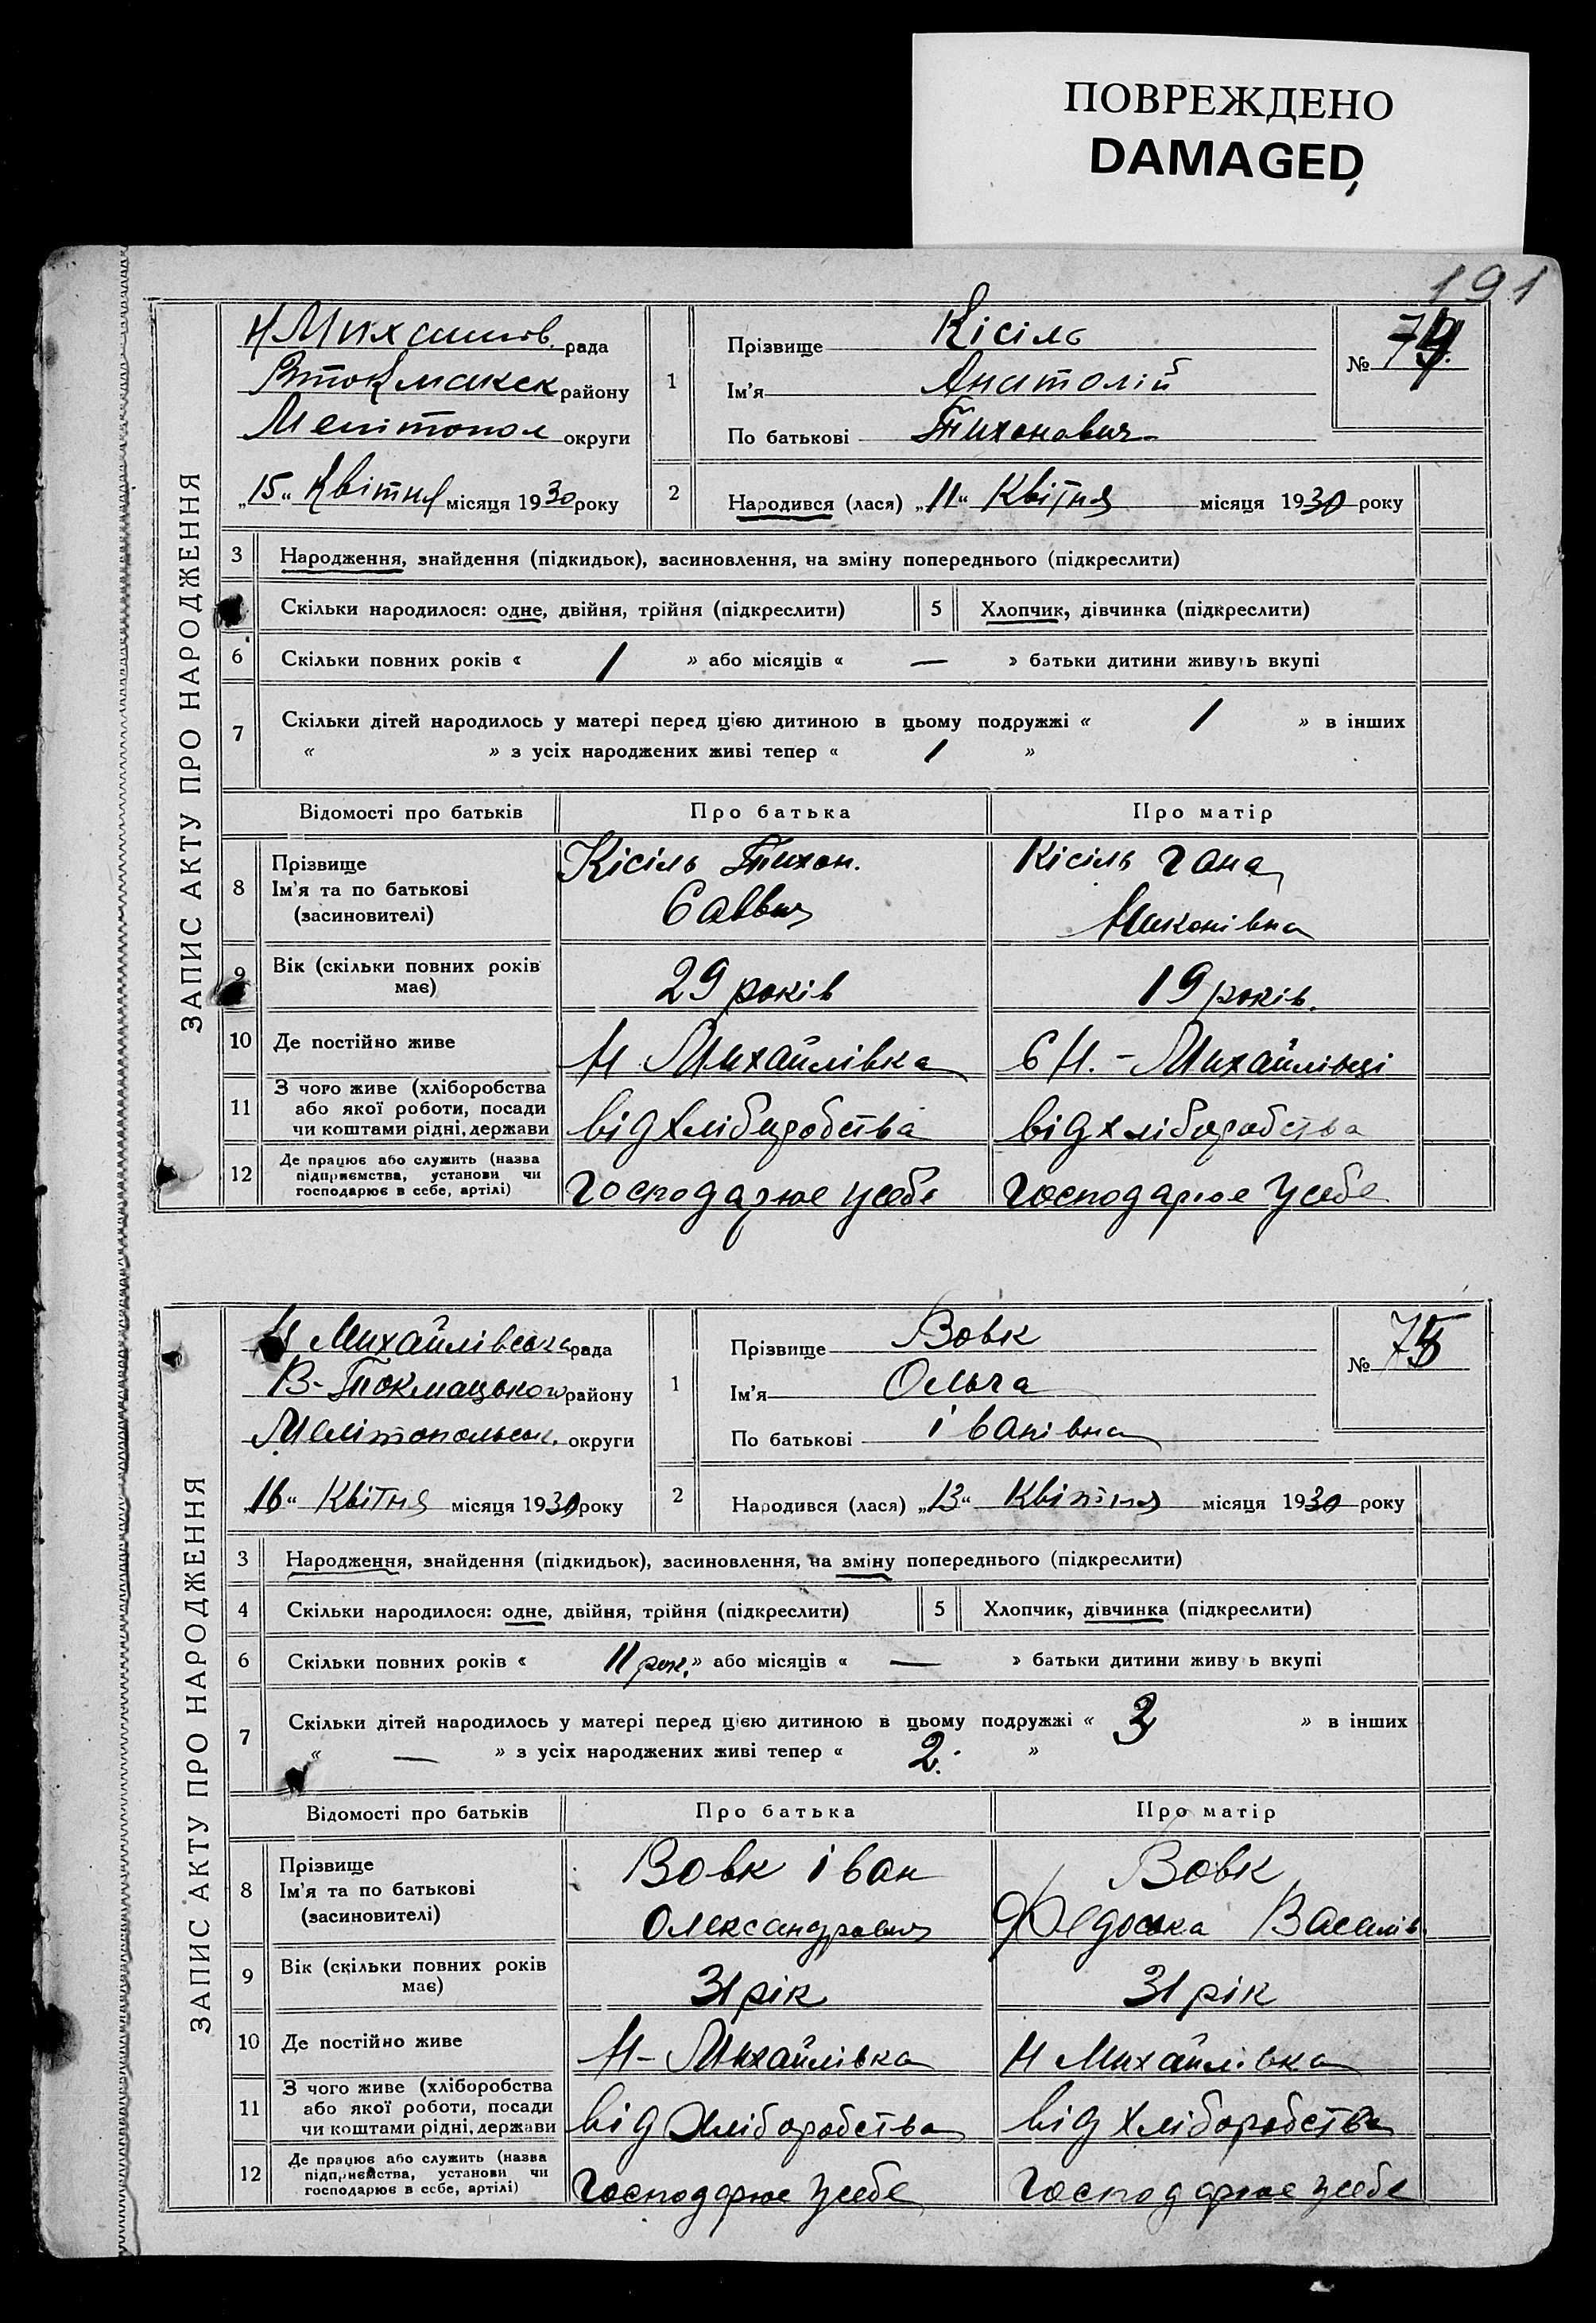 ПОВРЕЖДЕНО
DAMAGED
191
ЗАПИС АКТУ ПРО НАРОДЖЕННЯ
Н Михайлів. рада
району
Мелітопол округи
„15“ Квітня місяця 1930 року
1 Прізвище Кісіль
Ім'я Анатолій
По батькові Тихонович
№ 74
2 Народився (лася) „11“ Квітня місяця 1930 року
3 Народження, знайдення (підкидьок), засиновлення, на зміну попереднього (підкреслити)
Скільки народилося: одне, двійня, трійня (підкреслити) 5 Хлопчик, дівчинка (підкреслити)
6 Скільки повних років « 1 » або місяців « — » батьки дитини живуть вкупі
7 Скільки дітей народилось у матері перед цією дитиною в цьому подружжі « 1 » в інших
« » з усіх народжених живі тепер « 1 »
Відомості про батьків Про батька Про матір
8 Прізвище Ім'я та по батькові (засиновителі)
Кісіль Тихон.
Саввич
Кісіль Гана
Никонівна
9 Вік (скільки повних років має) 29 років 19 років.
10 Де постійно живе Н Михайлівка в Н.-Михайлівці
11 З чого живе (хліборобства або якої роботи, посади чи коштами рідні, держави від хліборобства від хліборобства
12 Де працює або служить (назва підприємства, установи чи господарює в себе, артілі) Господарює усебе Господарює усебе
ЗАПИС АКТУ ПРО НАРОДЖЕННЯ
Н Михайлівська рада
В-Токмацького району
Мелітопольськ. округи
„16“ Квітня місяця 1930 року
1 Прізвище Вовк
Ім'я Ольга
По батькові Іванівна
№ 75
2 Народився (лася) „13“ Квітня місяця 1930 року
3 Народження, знайдення (підкидьок), засиновлення, на зміну попереднього (підкреслити)
4 Скільки народилося: одне, двійня, трійня (підкреслити) 5 Хлопчик, дівчинка (підкреслити)
6 Скільки повних років « 11 рок. » або місяців « — » батьки дитини живу ь вкупі
7 Скільки дітей народилось у матері перед цією дитиною в цьому подружжі « 3 » в інших
« — » з усіх народжених живі тепер « 2. »
Відомості про батьків Про батька Про матір
8 Прізвище Ім'я та по батькові (засиновителі)
Вовк Іван
Олександрович
Вовк
Федоська Василів.
9 Вік (скільки повних років має) 31 рік 31 рік
10 Де постійно живе Н-Михайлівка Н Михайлівка
11 З чого живе (хліборобства або якої роботи, посади чи коштами рідні, держави від Хліборобства від Хліборобства
12 Де працює або служить (назва підприємства, установи чи господарює в себе, артілі) Господарює усебе Господарює усебе